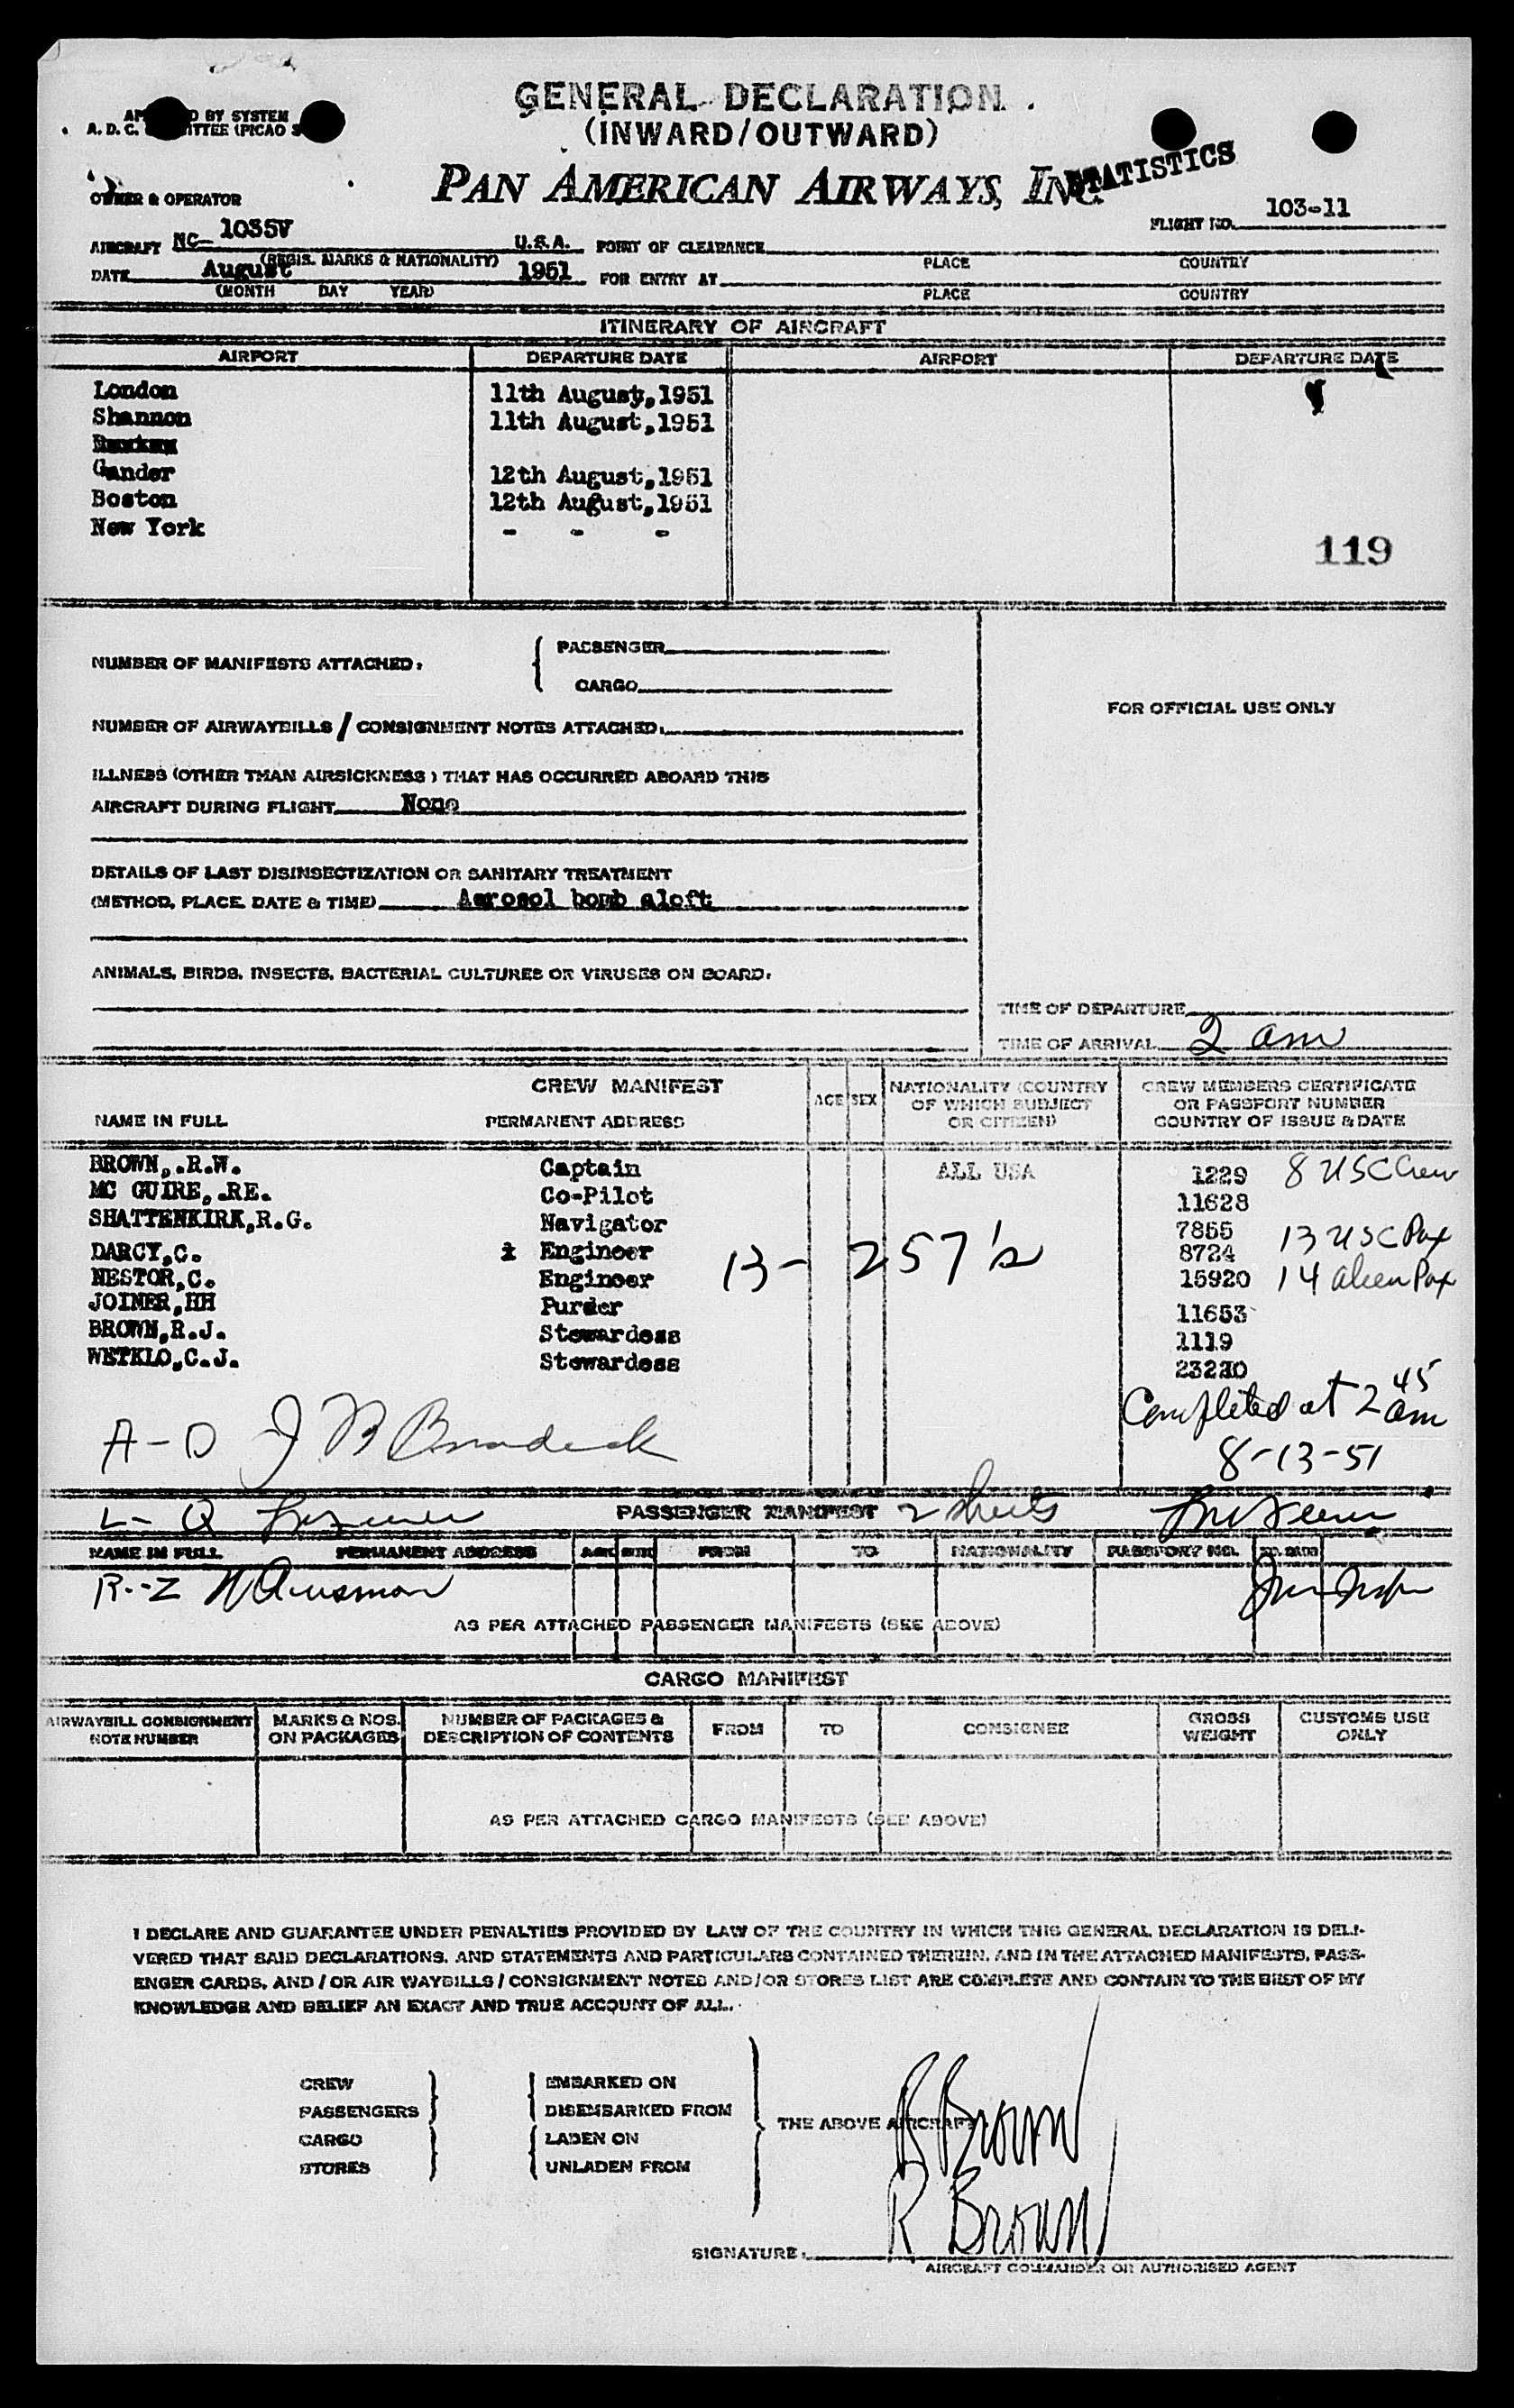 GENERAL DECLARATION
(INWARD/OUTWARD)
BY SYSTEM
A. D. C. (PICAO
PAN AMERICAN AIRWAYS, INC
STATISTICS
OWNER & OPERATOR
FLIGHT NO. 103-11
AIRCRAFT NC- 1035V U.S.A. POINT OF CLEARANCE
(REGIS. MARKS & NATIONALITY) PLACE COUNTRY
DATE August 1951 FOR ENTRY AT
(MONTH DAY YEAR) PLACE COUNTRY
ITINERARY OF AIRCRAFT
AIRPORT DEPARTURE DATE AIRPORT DEPARTURE DATE
London 11th August, 1951
Shannon 11th August, 1951
Gander 12th August, 1951
Boston 12th August, 1951
New York - - -
119
NUMBER OF MANIFESTS ATTACHED. PASSENGER
CARGO
FOR OFFICIAL USE ONLY
NUMBER OF AIRWAYBILLS / CONSIGNMENT NOTES ATTACHED.
ILLNESS (OTHER THAN AIRSICKNESS) THAT HAS OCCURRED ABOARD THIS
AIRCRAFT DURING FLIGHT None
DETAILS OF LAST DISINSECTIZATION OR SANITARY TREATMENT
(METHOD, PLACE, DATE & TIME) Aerosol bomb aloft
ANIMALS, BIRDS, INSECTS, BACTERIAL CULTURES OR VIRUSES ON BOARD.
TIME OF DEPARTURE
TIME OF ARRIVAL 2 am
CREW MANIFEST
NAME IN FULL PERMANENT ADDRESS AGE SEX NATIONALITY (COUNTRY OF WHICH SUBJECT OR CITIZEN) CREW MEMBERS CERTIFICATE OR PASSPORT NUMBER COUNTRY OF ISSUE & DATE
BROWN,.R.W. Captain ALL USA 1229 8 USC Crew
MC GUIRE,.RE. Co-Pilot 11628
SHATTENKIRK,R.G. Navigator 7855 13 USC Pax
DARCY,C. Engineer 13- 257's 8724
NESTOR,C. Engineer 15920 14 alien Pax
JOINER,HH Purser 11653
BROWN,R.J. Stewardess 1119
WETKLO,C.J. Stewardess 23230
Completed at 2 45 am
8-13-51
A-D J B
L-Q PASSENGER MANIFEST 2 sheets
NAME IN FULL PERMANENT ADDRESS AGE SEX FROM TO NATIONALITY PASSPORT NO.
R--Z
AS PER ATTACHED PASSENGER MANIFESTS (SEE ABOVE)
CARGO MANIFEST
AIRWAYBILL CONSIGNMENT NOTE NUMBER MARKS & NOS. ON PACKAGES NUMBER OF PACKAGES & DESCRIPTION OF CONTENTS FROM TO CONSIGNEE GROSS WEIGHT CUSTOMS USE ONLY
AS PER ATTACHED CARGO MANIFESTS (SEE ABOVE)
I DECLARE AND GUARANTEE UNDER PENALTIES PROVIDED BY LAW OF THE COUNTRY IN WHICH THIS GENERAL DECLARATION IS DELI-
VERED THAT SAID DECLARATIONS, AND STATEMENTS AND PARTICULARS CONTAINED THEREIN, AND IN THE ATTACHED MANIFESTS, PASS-
ENGER CARDS, AND / OR AIR WAYBILLS / CONSIGNMENT NOTES AND/OR STORES LIST ARE COMPLETE AND CONTAIN TO THE BEST OF MY
KNOWLEDGE AND BELIEF AN EXACT AND TRUE ACCOUNT OF ALL.
CREW EMBARKED ON
PASSENGERS DISEMBARKED FROM
THE ABOVE AIRCRAFT
CARGO LADEN ON
STORES UNLADEN FROM
R Brown
R Brown
SIGNATURE.
AIRCRAFT COMMANDER OR AUTHORISED AGENT